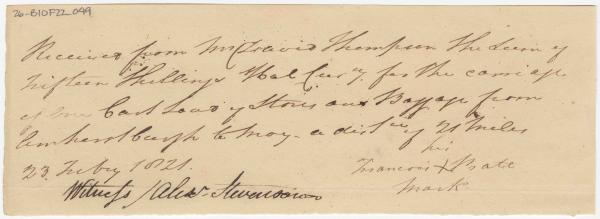 26-B10F22-049
Received from Mr David Thompson the Sum of
fifteen Shillings Hal Curr'y. for the carriage
of one Cart Load of Stores and Baggage from
Amherstburgh to - a dist'ce of 21 miles
23 Feb'y 1821.
his
Francois X Batt
mark
Witness Alex'r Stevenson